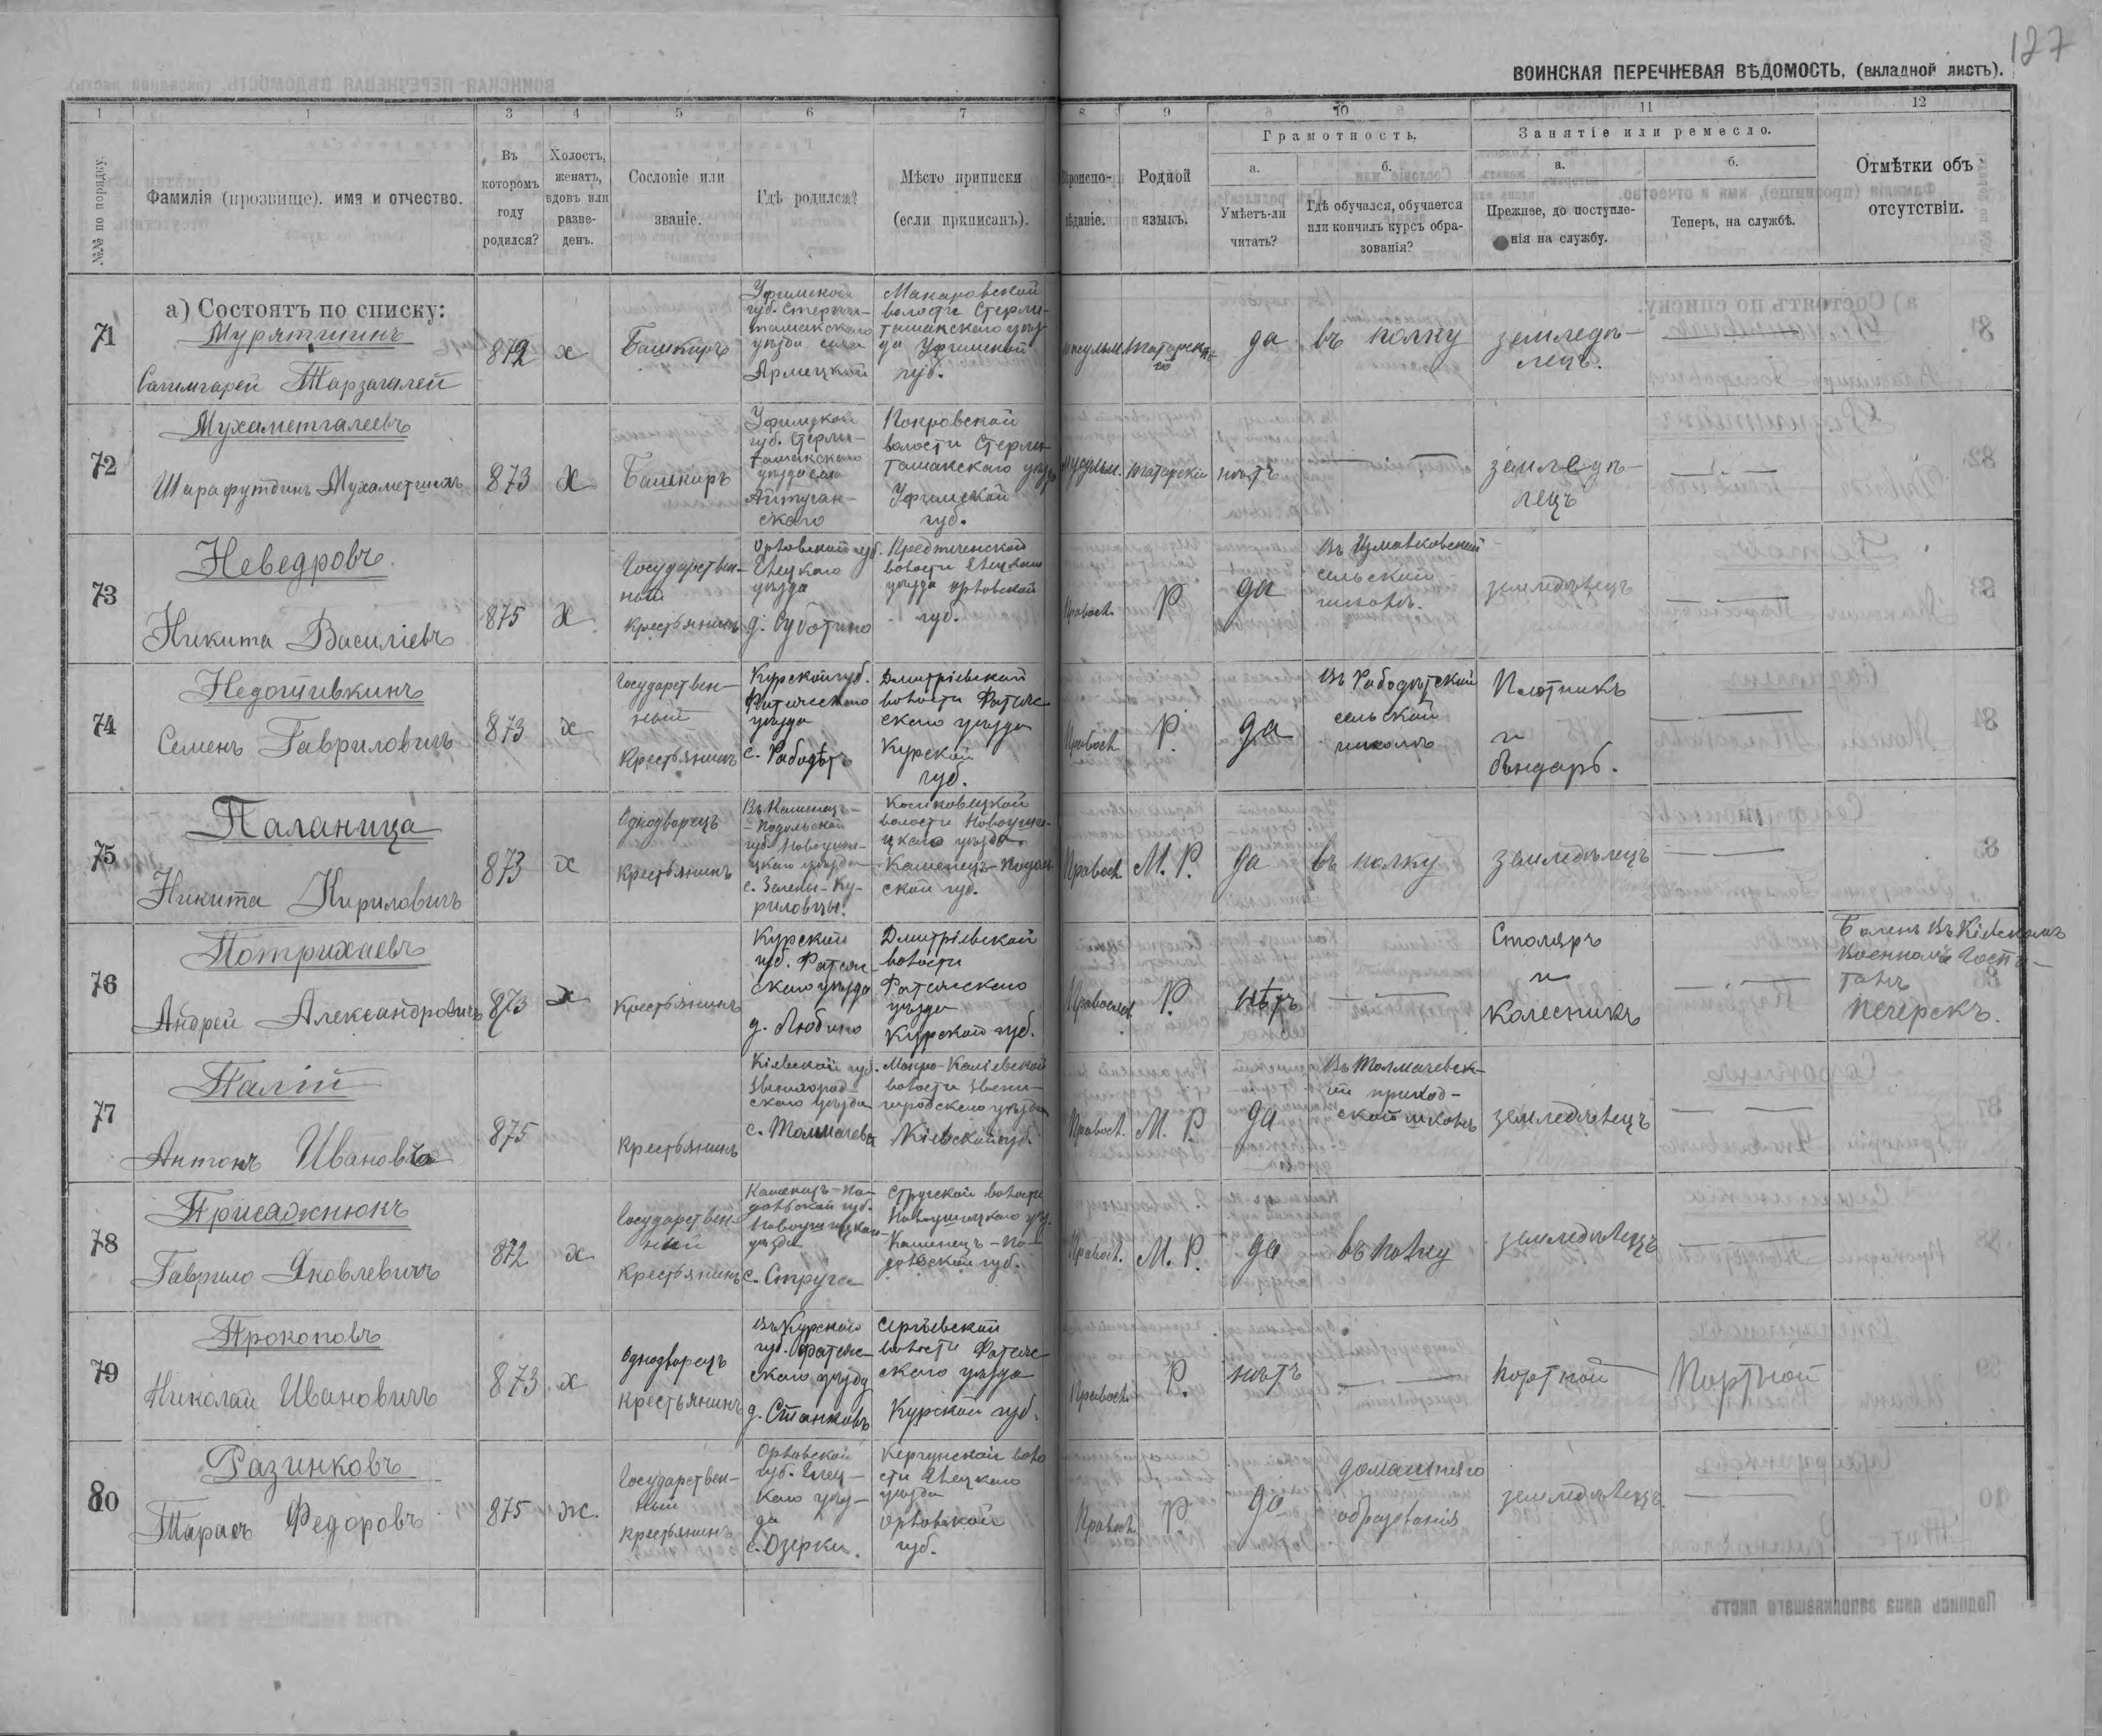 127
ВОИНСКАЯ ПЕРЕЧНЕВАЯ ВѢДОМОСТЬ, (вкладной листъ).
1 1 3 4 5 6 7 8 9 10 11 12
№№ по порядку.
Фамилія (прозвище). имя и отчество.
Въ которомъ году родился?
Холостъ, женатъ, вдовъ или разве-
денъ.
Сословіе или званіе.
Гдѣ родился?
Мѣсто приписки
(если приписанъ).
Вѣроиспо-
вѣданіе.
Родной языкъ.
Грамотность.
а.
Умѣетъ-ли читать?
б.
Гдѣ обучался, обучается
или кончилъ курсъ обра-
зованія?
Занятіе или ремесло.
а.
Прежнее, до поступле-
нія на службу.
б.
Теперь, на службѣ.
Отмѣтки объ
отсутствіи.
а) Состоятъ по списку:
71
872
х
Башкиръ
Уфимской
губ. Стерли-
тамакского
уѣзда села
Армецкой
Макаровской
волости Стерли-
тамакского уѣз-
да Уфимской
губ.
да
въ полку
земледѣ-
лецъ.
72
Мухаметгалеевъ
873
х
Башкиръ
Уфимской
губ. Стерли-
тамакского
Айтуган-
ского
Покровской
волости Стерли-
тамакского уѣзда
Уфимской
губ.
мусульм.
татарскій
нѣтъ
земледѣ-
лецъ
73
Неведровъ
Никита Василіевъ
875
х
Государствен-
ный
крестьянинъ
Орловской губ.
Елецкого
уѣзда
д. Суботино
Предтеченской
волости Елецкого
уѣзда Орловской
губ.
Правосл.
Р
да
Въ Измалковской
сельской
школѣ.
земледѣлецъ
74
Семенъ Гавриловичъ
873
х
Государствен-
ный
Крестьянинъ
Курской губ.
Фатежского
уѣзда
Дмитріевской
волости Фатеж-
ского уѣзда
Курской
губ.
Правосл.
Р.
да
сельской
школѣ
Плотникъ
и
бондарь.
75
Паланица
Никита Кириловичъ
873
х
Однодворецъ
крестьянинъ
Въ Каменецъ-
-Подольской
губ. Новоуши-
цкого уѣзда
с. Зелены-Ку-
риловцы.
волости Новоуши-
цкого уѣзда
Каменецъ-Подол
ской губ.
Правосл.
М. Р.
да
въ полку
земледѣлецъ
76
Потрихаевъ
Андрей Александровичъ
873
х
Крестьянинъ
Курской
губ. Фатеж-
ского уѣзда
д. Любино
Дмитріевской
волости
Фатежского
уѣзда
Курской губ.
Р.
нѣтъ
Столяръ
и
колесникъ
Боленъ въ Кіевскомъ
военномъ госпи-
Печерскъ.
77
Палій
Антонъ Ивановъ
875
крестьянинъ
Кіевской губ.
Звенигород-
ского уѣзда
с. Толмачева
волости Звени-
городского уѣзда
Кіевской губ.
Правосл.
М. Р.
да
Въ Толмачевск-
ой приход-
ской школѣ
земледѣлецъ
78
Присажнюкъ
Гаврило Яковлевичъ
872
х
Государствен-
ный
Крестьянинъ
Каменецъ-По-
дольской губ.
Новоушицкого
уѣзда
с. Струга
Стружской волости
Новоушицкого уѣз.
Каменецъ-По-
дольской губ.
Правосл.
М. Р.
да
въ полку
земледѣлецъ
79
Прокоповъ
Николай Ивановичъ
873
х
Однодворецъ
крестьянинъ
Въ Курского
губ. Фатеж-
ского уѣзда
д. Станковъ
Сергѣевской
волости Фатеж-
ского уѣзда
Курской губ.
Правосл.
Р.
нѣтъ
портной
Портной
80
Разинковъ
Тарасъ Федоровъ
875
ж.
Государствен-
ный
крестьянинъ
Орловской
губ. Елец-
кого уѣз-
да
с. Озерки.
сти Елецкого
уѣзда
Орловской
губ.
Правосл.
Р.
да
домашняго
образованія
земледѣлецъ.